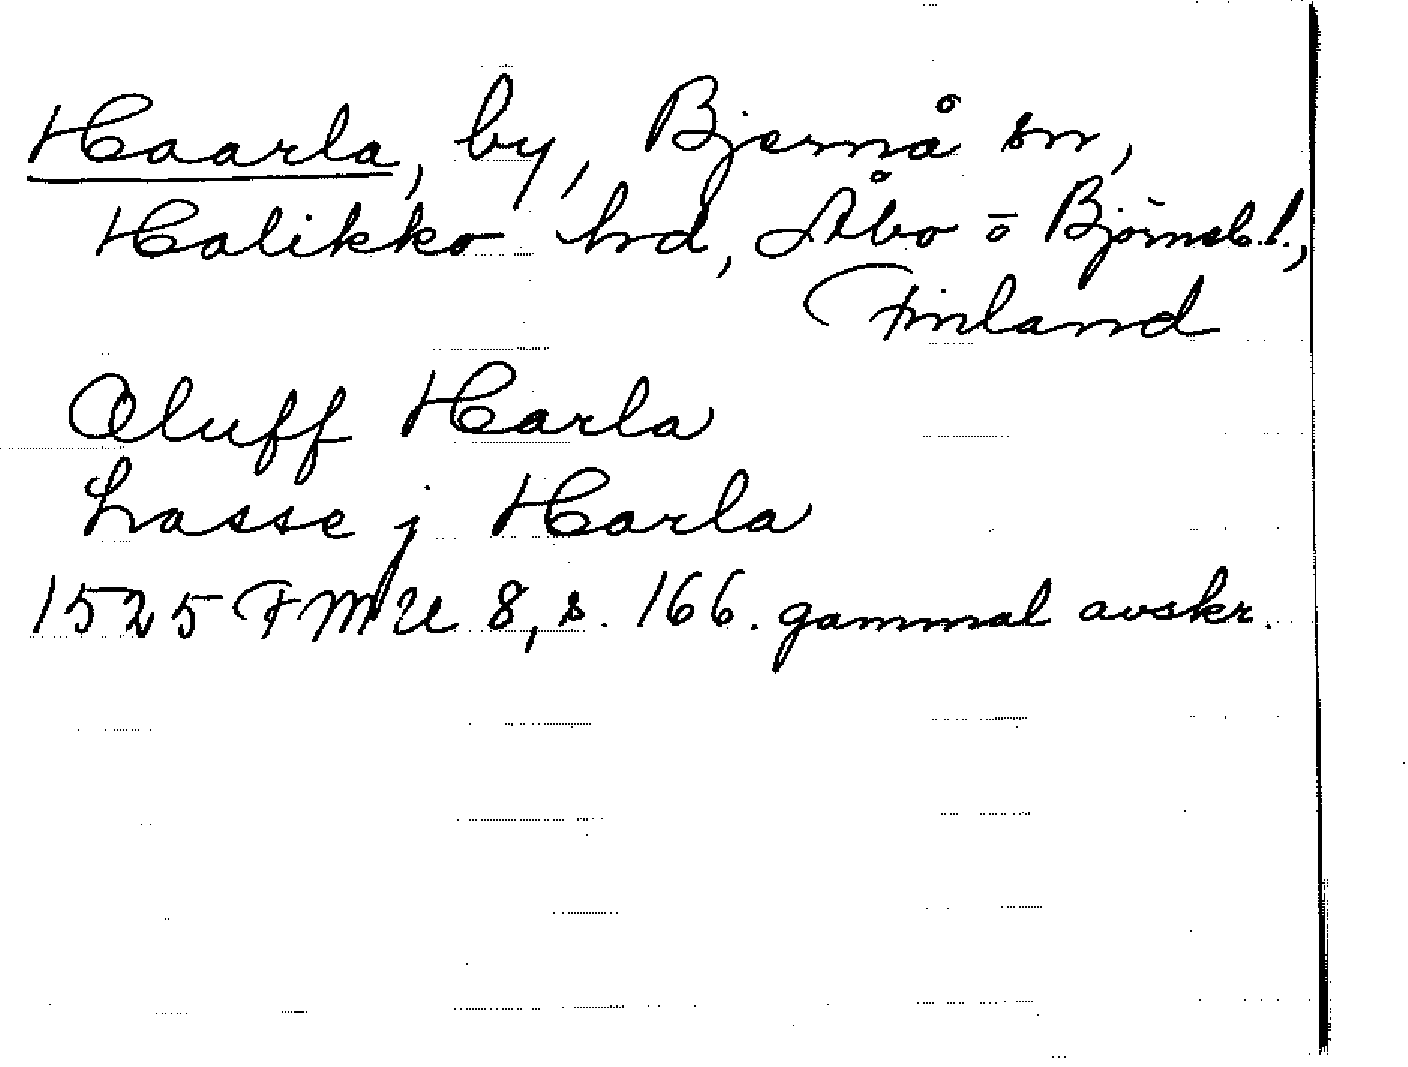 Haarla, by, Bjernå sn,
Halikko hd, Åbo o Björneb. l.,
Finland
Oluff Harla
Lasse j Harla
1525 FMU 8, s. 166. gammal avskr.